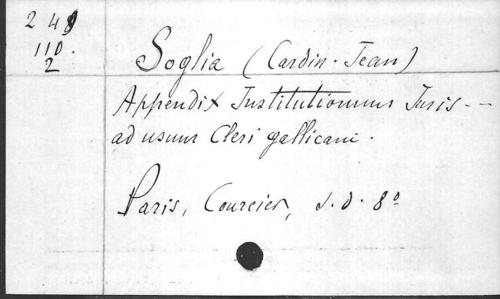 248
110.
2
Soglia (Cardin. Jean)
Appendix Institutionum Juris --
ad usum Cleri gallicani.
Paris, Courcier, s.d. 8º